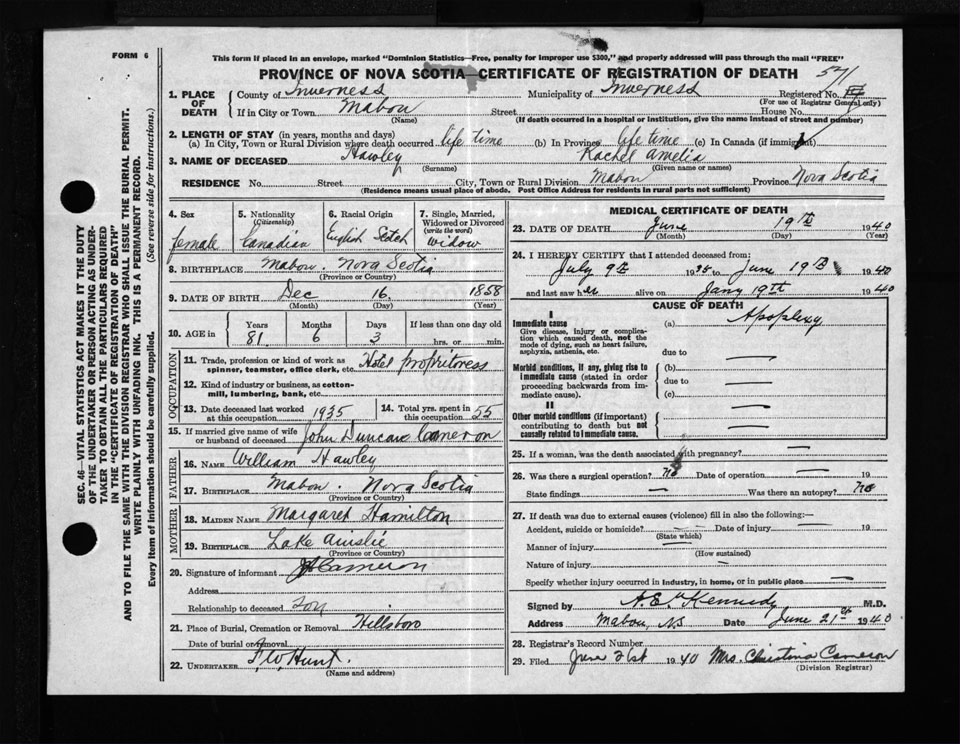 FORM 6
This form if placed in an envelope, marked "Dominion Statistics—Free, penalty for improper use $300," and properly addressed will pass through the mail "FREE"
PROVINCE OF NOVA SCOTIA—CERTIFICATE OF REGISTRATION OF DEATH
571
1. PLACE OF DEATH
County of Inverness Municipality of Inverness Registered No.
(For use of Registrar General only)
If in City or Town Mabou Street House No.
(Name) (If death occurred in a hospital or institution, give the name instead of street and number)
2. LENGTH OF STAY (in years, months and days)
(a) In City, Town or Rural Division where death occurred life time (b) In Province life time (c) In Canada (if immigrant)
3. NAME OF DECEASED Hawley Rachel Amelia
(Surname) (Given name or names)
RESIDENCE No. Street City, Town or Rural Division Mabou Province Nova Scotia
(Residence means usual place of abode. Post Office Address for residents in rural parts not sufficient)
4. Sex female
5. Nationality (Citizenship) Canadian
6. Racial Origin English Scotch
7. Single, Married, Widowed or Divorced (write the word) widow
8. BIRTHPLACE Mabou. Nova Scotia
(Province or Country)
9. DATE OF BIRTH Dec 16 1858
(Month) (Day) (Year)
10. AGE in Years Months Days If less than one day old
81 6 3 hrs. or min.
OCCUPATION
11. Trade, profession or kind of work as spinner, teamster, office clerk, etc. Hotel proprietoress
12. Kind of industry or business, as cotton-mill, lumbering, bank, etc.
13. Date deceased last worked at this occupation 1935
14. Total yrs. spent in this occupation 55
15. If married give name of wife or husband of deceased John Duncan Cameron
FATHER
16. NAME William Hawley
17. BIRTHPLACE Mabou. Nova Scotia
(Province or Country)
MOTHER
18. MAIDEN NAME Margaret Hamilton
19. BIRTHPLACE Lake Ainslie
(Province or Country)
20. Signature of informant Cameron
Address
Relationship to deceased Son
21. Place of Burial, Cremation or Removal Hillsboro
Date of burial or Removal
22. UNDERTAKER F. W. Hunt.
(Name and address)
MEDICAL CERTIFICATE OF DEATH
23. DATE OF DEATH June 19th 1940
(Month) (Day) (Year)
24. I HEREBY CERTIFY that I attended deceased from:
July 9th 1938 to June 19th 1940
and last saw her alive on Jany 19th 1940
CAUSE OF DEATH
I
Immediate cause
Give disease, injury or complication which caused death, not the mode of dying, such as heart failure, asphyxia, asthenia, etc.
(a) Apoplexy
due to —
Morbid conditions, if any, giving rise to immediate cause (stated in order proceeding backwards from immediate cause)
(b)
due to —
(c)
II
Other morbid conditions (if important) contributing to death but not causally related to immediate cause.
25. If a woman, was the death associated with pregnancy? —
26. Was there a surgical operation? no Date of operation — 19
State findings — Was there an autopsy? no
27. If death was due to external causes (violence) fill in also the following:—
Accident, suicide or homicide? — Date of injury — 19
(State which)
Manner of injury
(How sustained)
Nature of injury —
Specify whether injury occurred in industry, in home, or in public place —
Signed by A. E. Kennedy M.D.
Address Mabou, N.S Date June 21st 1940
28. Registrar's Record Number
29. Filed June 21st 1940 Mrs. Christina Cameron
(Division Registrar)
SEC. 46—VITAL STATISTICS ACT MAKES IT THE DUTY
OF THE UNDERTAKER OR PERSON ACTING AS UNDER-
TAKER TO OBTAIN ALL THE PARTICULARS REQUIRED
IN THE "CERTIFICATE OF REGISTRATION OF DEATH"
AND TO FILE THE SAME WITH THE DIVISION REGISTRAR WHO SHALL ISSUE THE BURIAL PERMIT.
WRITE PLAINLY WITH UNFADING INK. THIS IS A PERMANENT RECORD.
Every item of information should be carefully supplied. (See reverse side for instructions.)